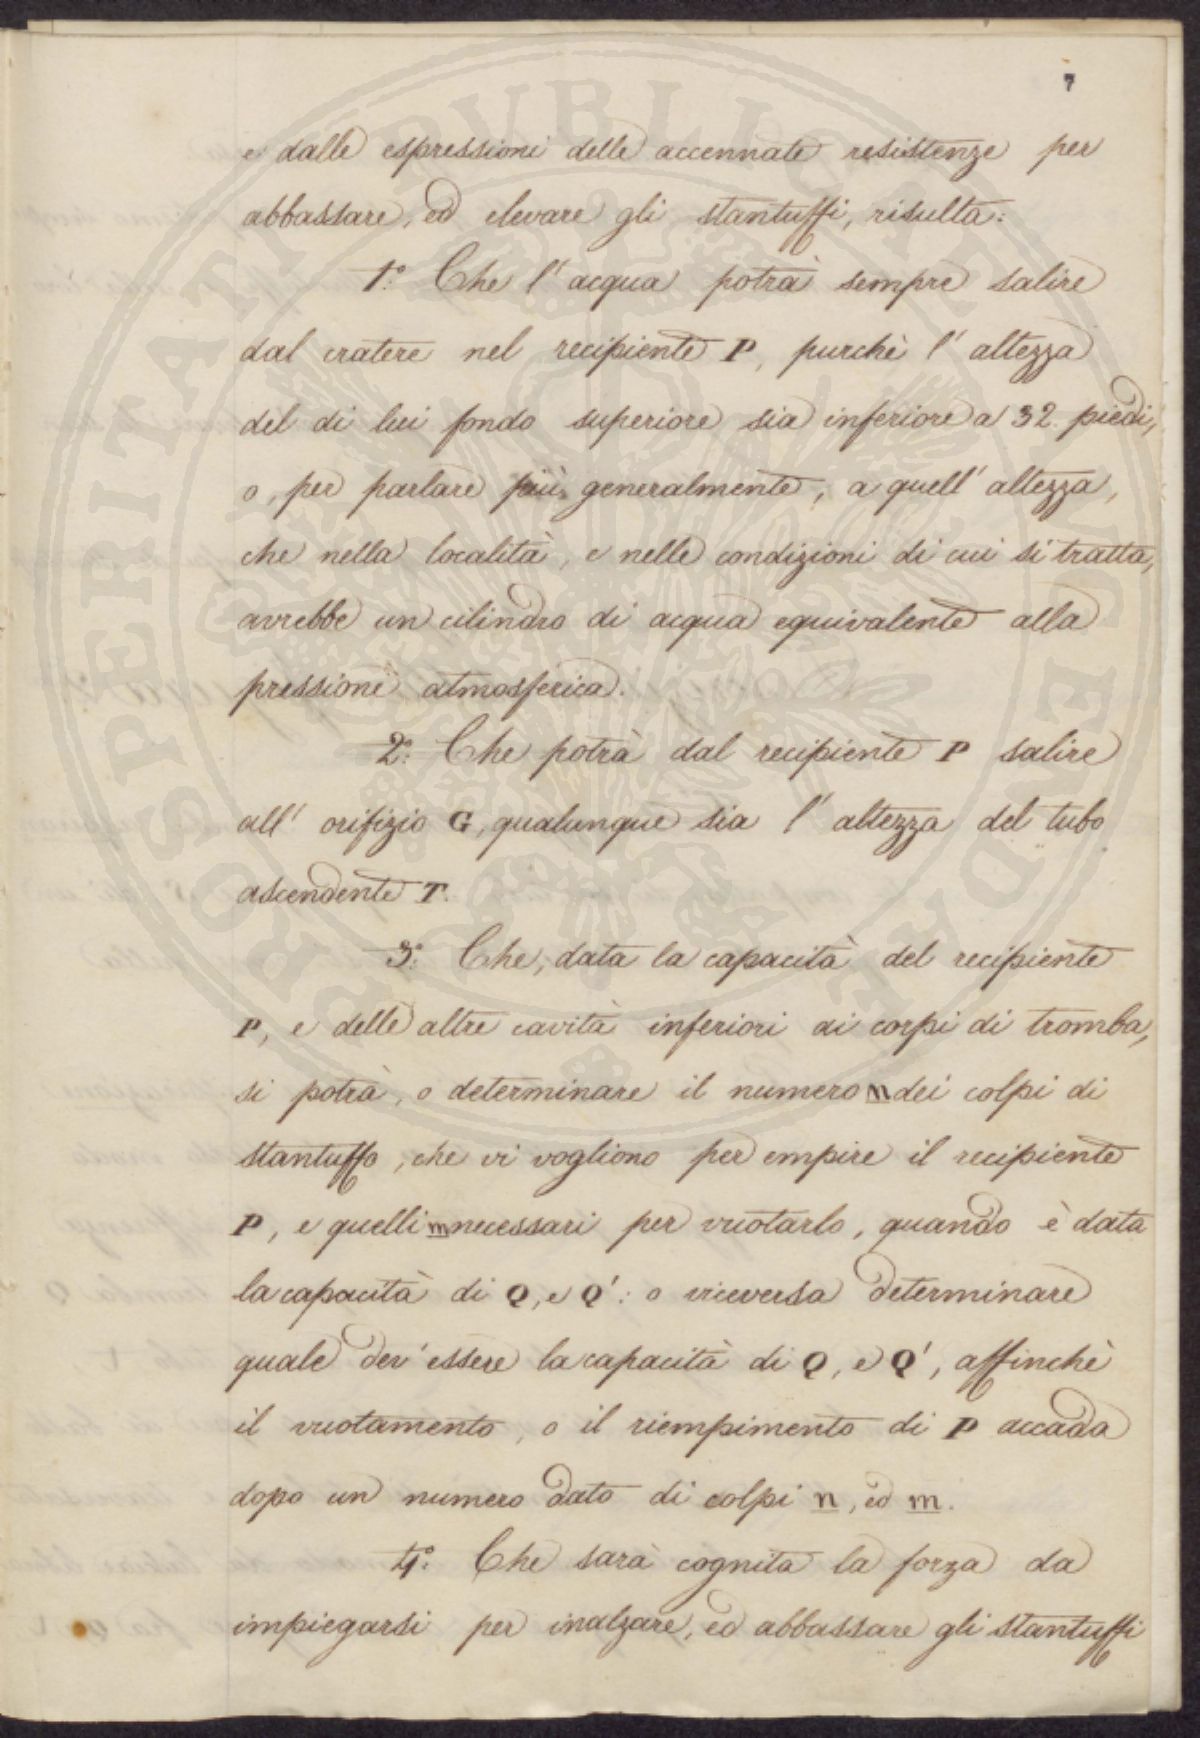 7
e dalle espressioni delle accennate resistenze per
abbassare, ed elevare gli stantuffi, risulta:
1.° Che l'acqua potrà sempre salire
dal cratere nel recipiente P, purchè l'altezza
del di lui fondo superiore sia inferiore a 32 piedi,
o, per parlare più generalmente, a quell'altezza,
che nella località, e nelle condizioni di cui si tratta,
avrebbe un cilindro di acqua equivalente alla
pressione atmosferica.
2.° Che potrà dal recipiente P salire
all'orifizio G, qualunque sia l'altezza del tubo
ascendente T.
3.° Che, data la capacità del recipiente
P, e delle altre cavità inferiori ai corpi di tromba,
si potrà, o determinare il numero n dei colpi di
stantuffo, che vi vogliono per empire il recipiente
P, e quelli m necessari per vuotarlo, quando è data
la capacità di Q, e Q': o viceversa determinare
quale dev'essere la capacità di Q, e Q', affinchè
il vuotamento, o il riempimento di P accada
dopo un numero dato di colpi n, ed m.
4.° Che sarà cognita la forza da
impiegarsi per inalzare, ed abbassare gli stantuffi
PROSPERITATI PUBLICAE AUGENDAE